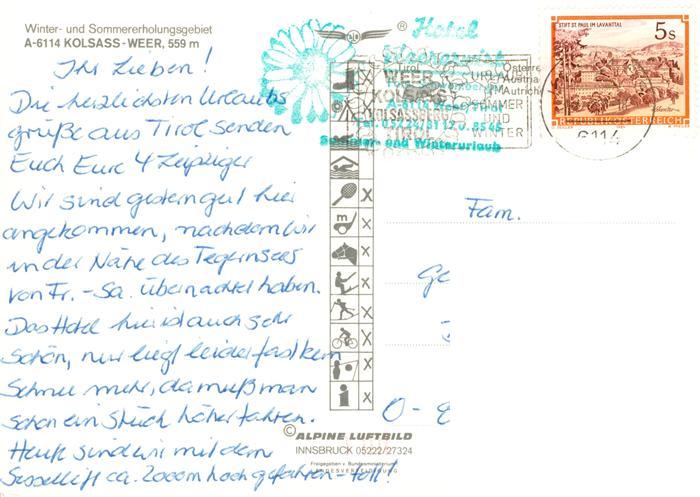 Winter- und Sommererholungsgebiet
A-6114 KOLSASS-WEER, 559 m
Ihr Lieben!
Die herzlichsten Urlaubs
grüße aus Tirol senden
Euch Eure 4 Leipziger
Wir sind gestern gut hier
angekommen, nachdem wir
in der Nähe des Tegernsees
von Fr. - Sa. übernachtet haben.
Das Hotel hier ist auch sehr
schön, nur liegt leider fast kein
Schnee mehr, da muß man
schon ein Stück höher fahren.
Heute sind wir mit dem
Sessellift ca. 2000m hochgefahren - toll!
®
Hotel
A-6114
Tirol
Tel. 05224/81
Sommer- und Winterurlaub
WEER
KOLSASS
KOLSASSBERG
TIROL
URLAUB
IM
SOMMER
UND
WINTER
6114
STIFT ST. PAUL IM LAVANTTAL
5s
REPUBLIK ÖSTERREICH
Fam.
Ge
O-
© ALPINE LUFTBILD
INNSBRUCK 05222/27324
Freigegeben v. Bundesministerium
LANDESVERTEIDIGUNG